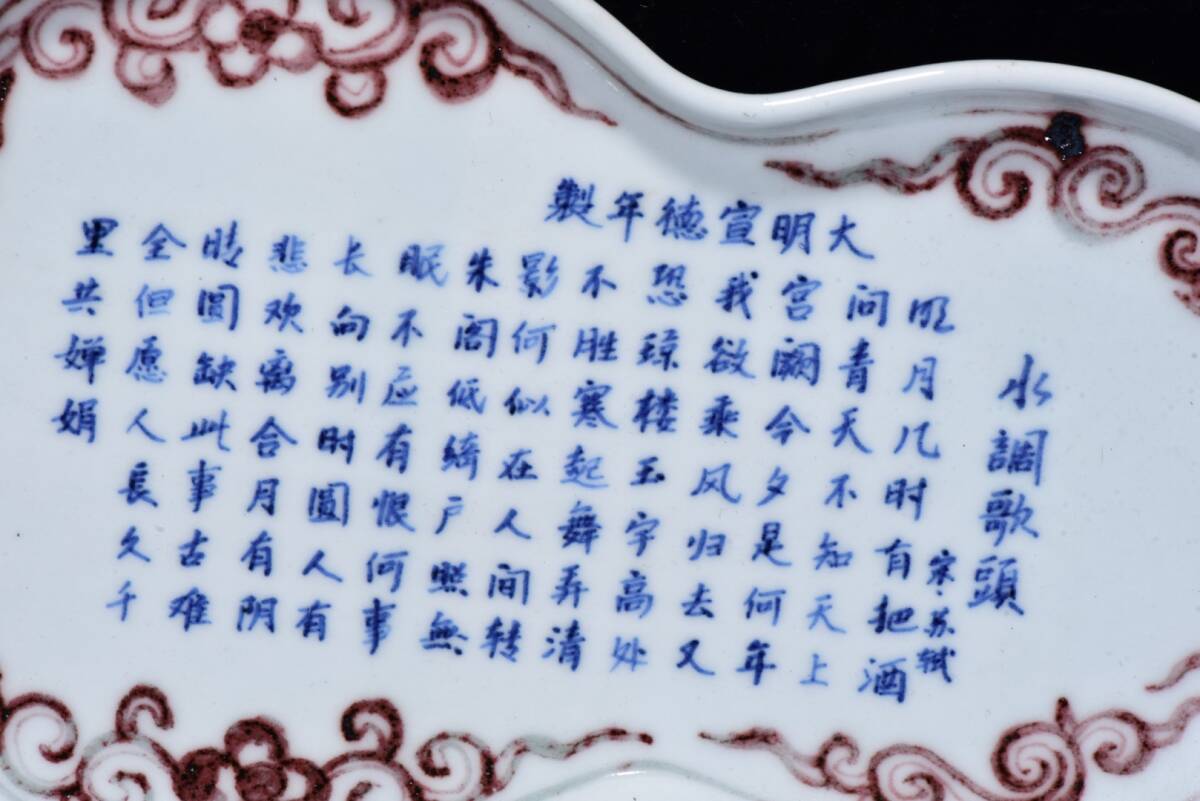 大明宣德年製
水調歌頭
宋·苏轼
明月几时有把酒
问青天不知天上
宫阙今夕是何年
我欲乘风归去又
恐琼楼玉宇高处
不胜寒起舞弄清
影何似在人间转
朱阁低绮户照無
眠不应有恨何事
长向别时圓人有
悲欢离合月有阴
晴圓缺此事古难
全但愿人長久千
里共婵娟